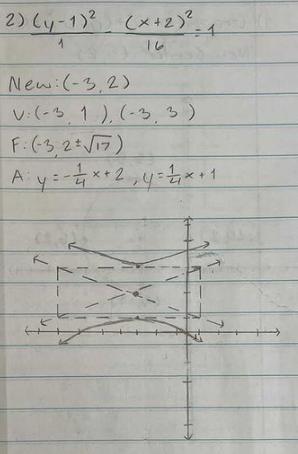 2) (y-1)²/1 - (x+2)²/16 = 1
New: (-3, 2)
V: (-3, 1), (-3, 3)
F: (-3, 2±√17)
A: y = -1/4 x + 2, y = 1/4 x + 1